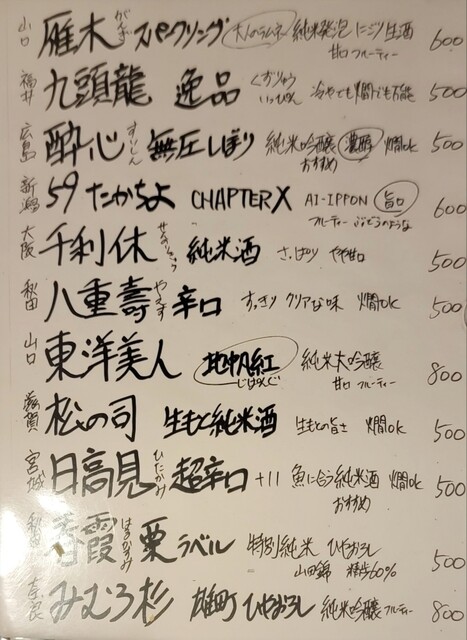 山口 雁木 がんぎ スパークリング 大人のラムネ 純米発泡にごり生酒 600
甘口 フルーティー
福井 九頭龍 逸品 くずりゅう いっぴん 冷やでも燗でも万能 500
広島 酔心 すいしん 無圧しぼり 純米吟醸 濃醇 燗ok 500
おすすめ
新潟 59 たかちよ CHAPTER X AI-IPPON 旨口 600
フルーティー ぶどうのような
大阪 千利休 せんのりきゅう 純米酒 さっぱり やや甘口 500
秋田 八重壽 やえす 辛口 すっきり クリアな味 燗ok 500
山口 東洋美人 地帆紅 じぱんぐ 純米大吟醸 800
甘口 フルーティー
滋賀 松の司 生もと純米酒 生もとの旨さ 燗ok 500
宮城 日高見 ひたかみ 超辛口 +11 魚に合う純米酒 燗ok 500
おすすめ
秋田 春霞 はるかすみ 栗ラベル 特別純米 ひやおろし 500
山田錦 精歩60%
奈良 みむろ杉 雄町 ひやおろし 純米吟醸 フルーティー 800